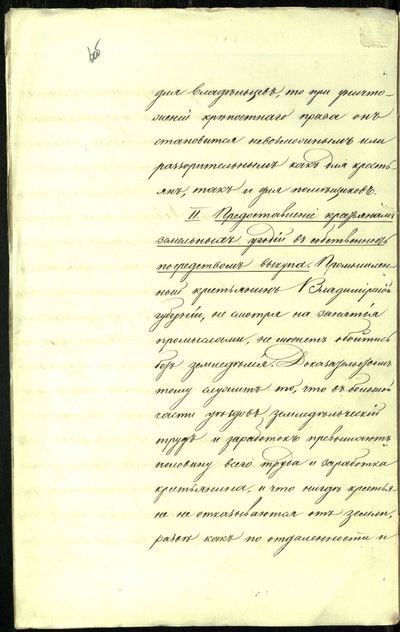 для владѣльцевъ, то при уничто-
женіи крѣпостнаго права онъ
становится невозможнымъ или
раззорительнымъ какъ для кресть-
янъ, такъ и для помѣщиковъ.
II. Предоставленіе крестьянамъ
земельныхъ угодій въ собственность
посредствомъ выкупа. Промышлен-
ный крестьянинъ Владимірской
губерніи, не смотря на занятія
промыслами, не можетъ обойтись
безъ земледѣлія. Доказательствомъ
тому служитъ то, что въ большой
части уѣздовъ земледѣльческій
трудъ и заработокъ превышаютъ
половину всего труда и заработка
крестьянина, и что нигдѣ крестья-
не не отказываются отъ земли,
развѣ какъ по отдаленности и